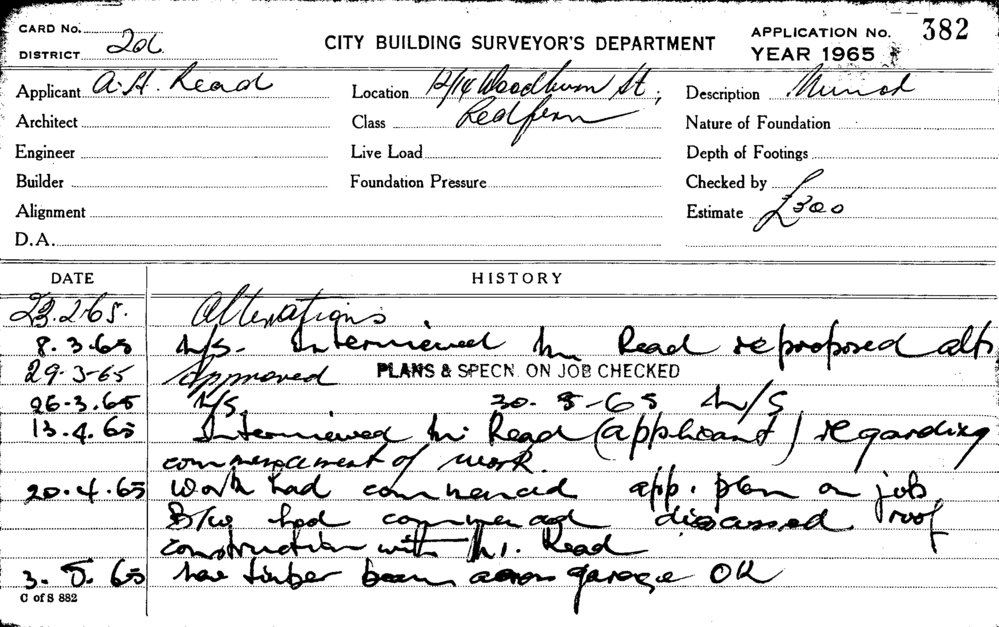 CARD No.
DISTRICT
CITY BUILDING SURVEYOR'S DEPARTMENT
APPLICATION No. 382
YEAR 1965
Applicant A. H. Read
Location 12/14 Woodburn St,
Redfern
Description
Architect
Class
Nature of Foundation
Engineer
Live Load
Depth of Footings
Builder
Foundation Pressure
Checked by
Alignment
Estimate £300
D.A.
DATE HISTORY
23.2.65. Alterations
8.3.65 Interviewed Mr Read re proposed alts
29-3-65 Approved PLANS & SPECN. ON JOB CHECKED
26-3.65 N/S. 30-3-65 N/S
13.4.65 Interviewed Mr. Read (applicant) regarding
commencement of work.
20.4.65 Work had commenced app. plan on job
B/W had commenced discussed roof
construction with Mr. Read
3.5.65 timber beam across garage OK
C of S 882